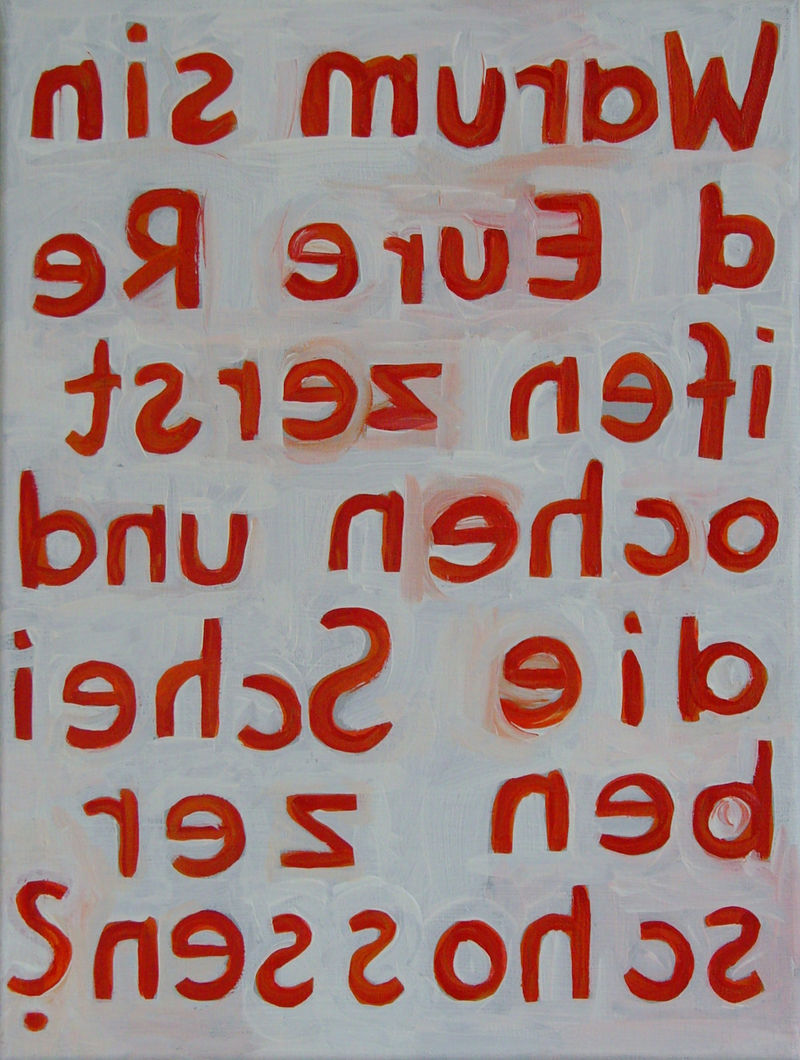 Warum sin
d Eure Re
ifen zerst
ochen und
die Schei
ben zer
schossen?